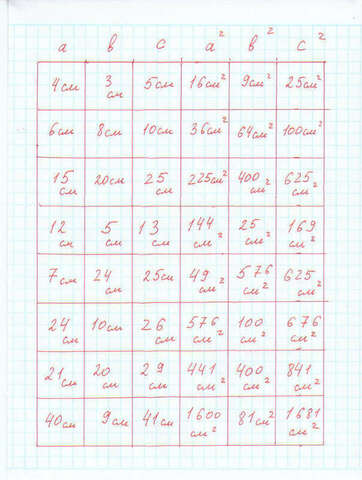 a в c a² в² c²
4см 3 см 5см 16см² 9см² 25см²
6см 8см 10см 36см² 64см² 100см²
15 см 20см 25 см 225см² 400 см² 625 см²
12 см 5 см 13 см 144 см² 25 см² 169 см²
7см 24 см 25см 49 см² 576 см² 625 см²
24 см 10см 26 см 576 см² 100 см² 676 см²
21 см 20 см 29 см 441 см² 400 см² 841 см²
40см 9см 41см 1600 см² 81см² 1681 см²